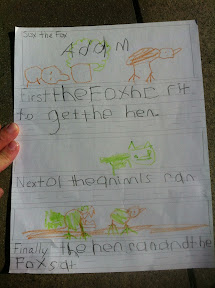 Sox the Fox
Addm
First the Fox
to get the hen.
Next ol the animls ran
Finally the hen ran and the
Fox sat